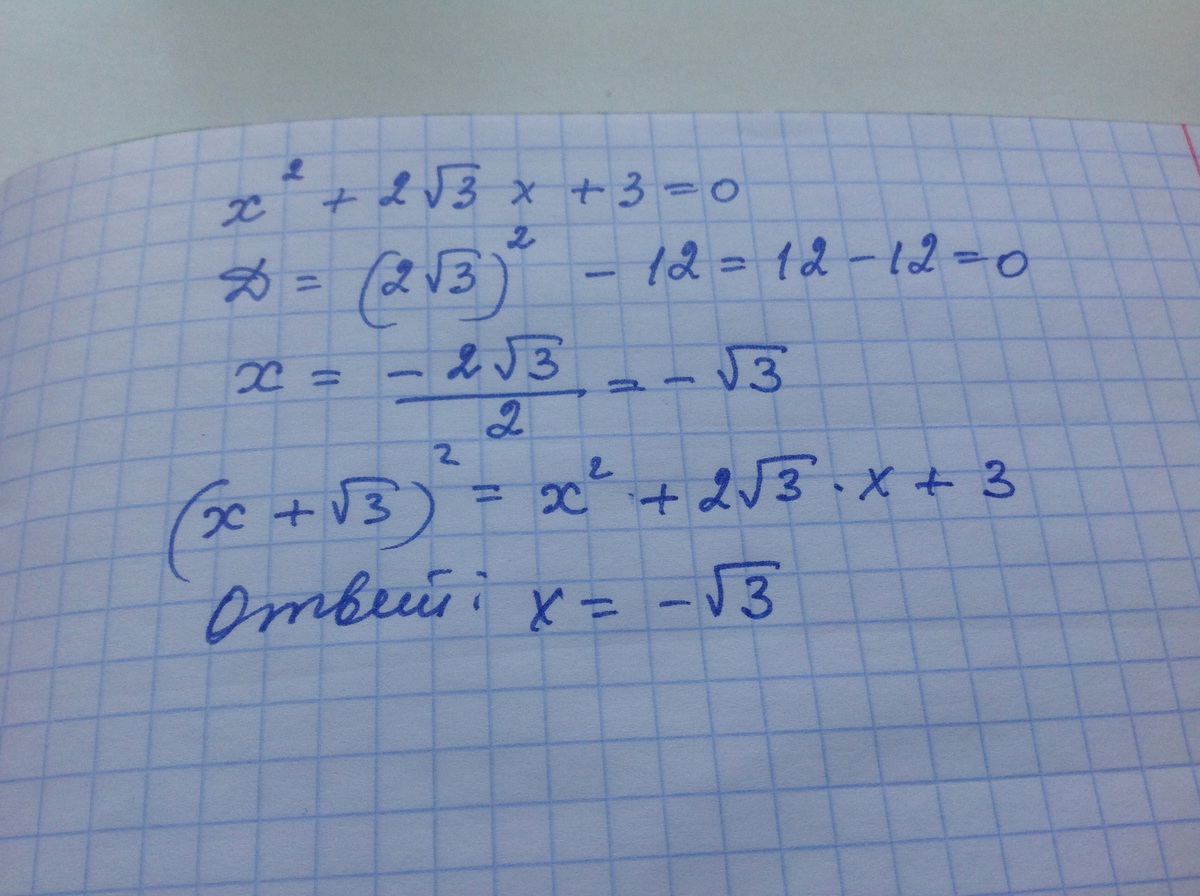 x² + 2√3 x + 3 = 0
D = (2√3)² - 12 = 12 - 12 = 0
x = -2√3/2 = -√3
(x + √3)² = x² + 2√3 · x + 3
Ответ: x = -√3